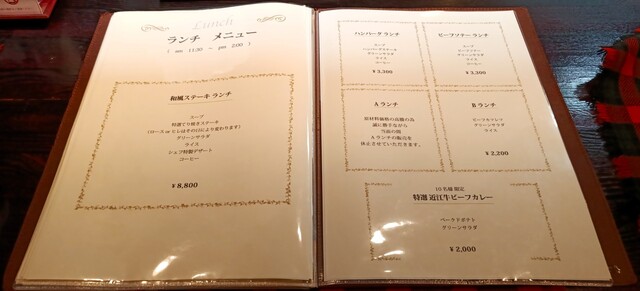 Lunch
ランチ メニュー
( am 11:30 ～ pm 2:00 )
和風ステーキ ランチ
スープ
特選てり焼きステーキ
(ロース or ヒレはその日により変わります)
グリーンサラダ
ライス
シェフ特製デザート
コーヒー
¥8,800
ハンバーグ ランチ
スープ
ハンバーグステーキ
グリーンサラダ
ライス
コーヒー
¥3,300
ビーフソテー ランチ
スープ
ビーフソテー
グリーンサラダ
ライス
コーヒー
¥3,300
A ランチ
原材料価格の高騰の為
誠に勝手ながら
当面の間
A ランチの販売を
休止させていただきます。
B ランチ
グリーンサラダ
ライス
¥2,200
10 名様 限定
特選 近江牛ビーフカレー
ベークドポテト
グリーンサラダ
¥2,000